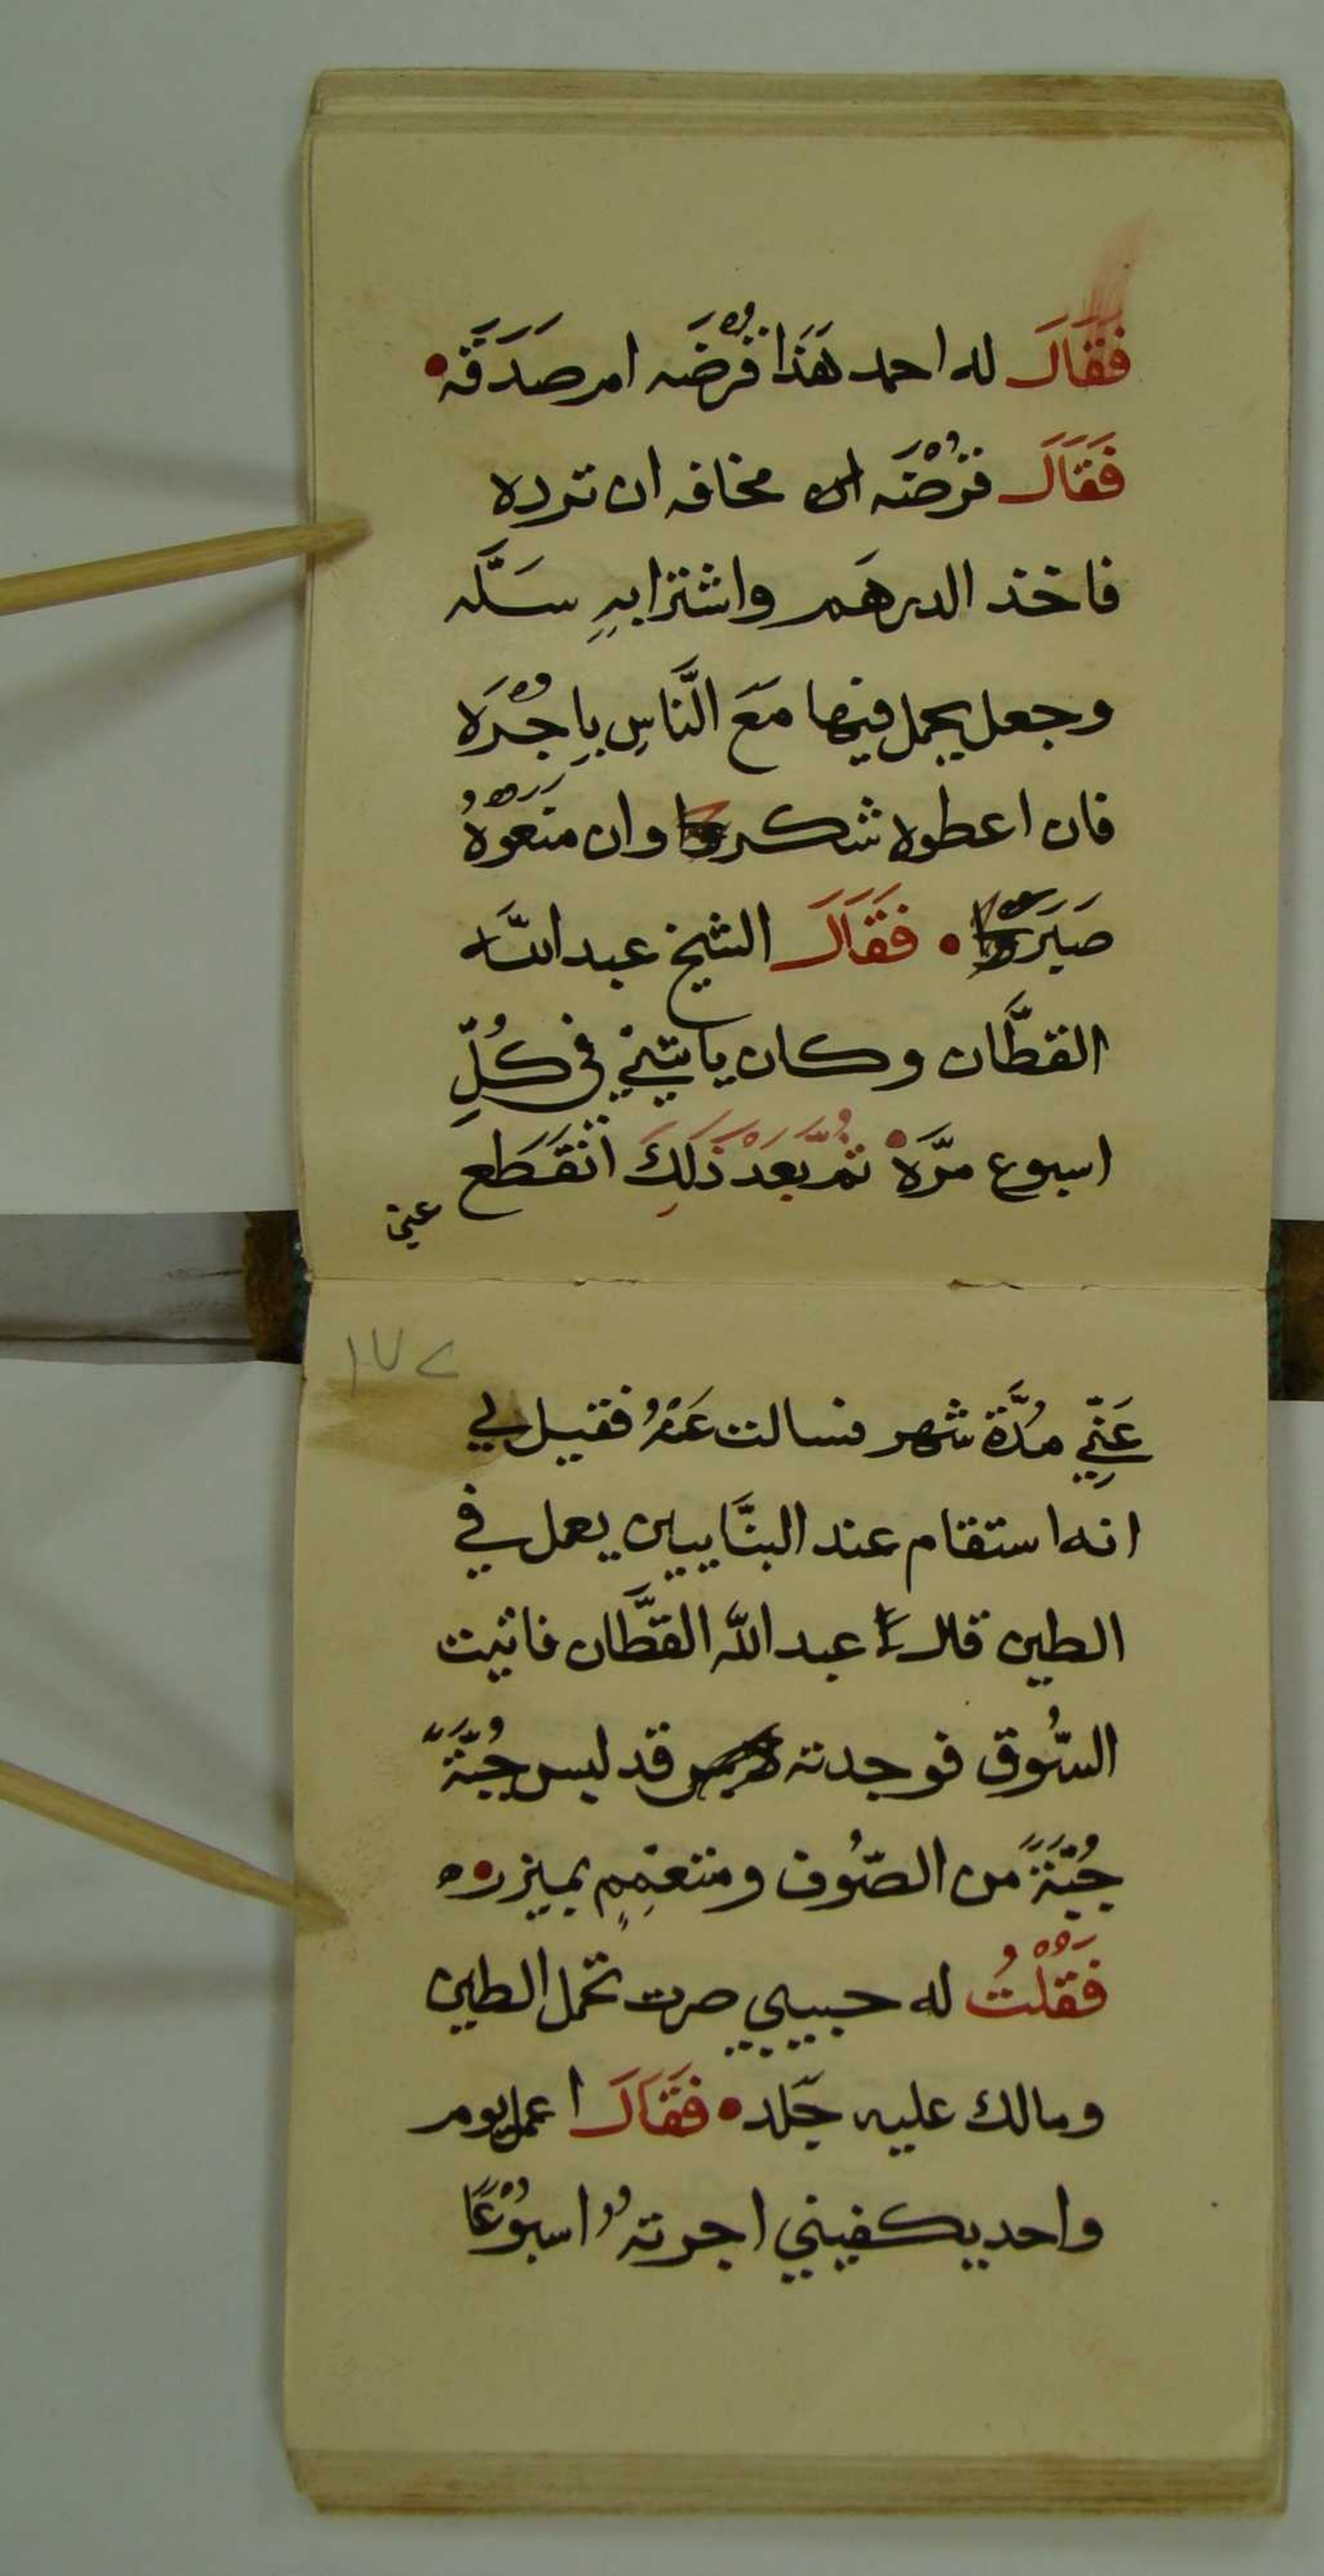 فَقَالَ له احمد هَذَا قَرْضَه امر صَدَقَه
فَقَالَ قَرْضَه مخافه ان ترده
فاخذ الدرهَم واشترا بهِ سَلَّه
وجعل يحمل فيها مَعَ النَّاسِ بِاجْرَه
فان اعطوه شكر وان مَنَعَوْهُ
صَبَرَ فَقَالَ الشيخ عبد اللَّه
القطَّان وكان ياتيني في كُلِّ
اسبوع مرَّة ثُمَّ بَعْدَ ذَلِكَ انْقَطَع
عني
١٧٢
عَنِّي مُدَّة شهر فسالت عَنْهُ فقيل لي
انه استقام عند البنَّايين يعمل في
الطين قال عبد اللّه القطَّان فاتيت
السُّوق فوجدته قد لبس جُبَّةً
جُبَّةً من الصُّوف ومتعمِمٍ بميزره
فَقُلْتُ له حبيبي صرت تحمل الطين
ومالك عليه جَلد فَقَالَ اعمل يوم
واحد يكفيني اجرتهُ اسبُوْعًا